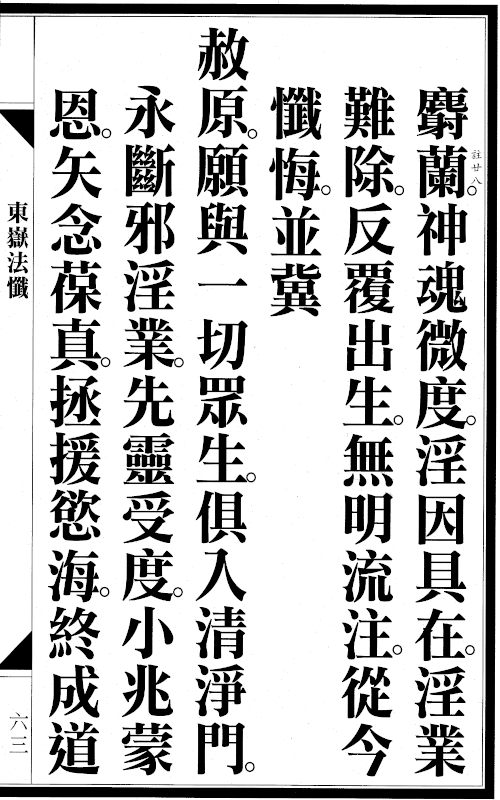 麝蘭。神魂微度。淫因具在。淫業
註廿八
難除。反覆出生。無明流注。從今
懺悔。並冀
赦原。願與一切眾生。俱入清淨門。
永斷邪淫業。先靈受度。小兆蒙
恩。矢念葆真。拯援慾海。終成道
東嶽法懺
六三